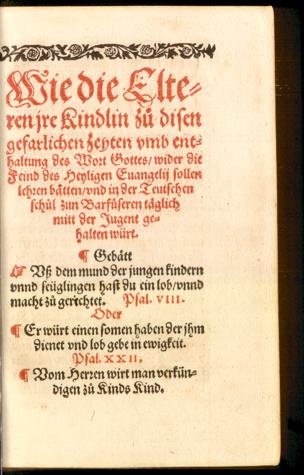 Wie die Elte-
ren jre Kindlin zů disen
gefarlichen zeyten vmb ent-
haltung des Wort Gottes/ wider die
Feind des Heyligen Euangelij sollen
lehren bätten/ vnd in der Teutschen
schůl zun Barfůseren täglich
mitt der Jugent ge-
halten würt.
¶ Gebätt
☞ Vß dem mund der jungen kindern
vnnd seüglingen hast du ein lob/ vnnd
macht zů gerichtet. Psal. VIII.
Oder
¶ Er würt einen somen haben der jhm
dienet vnd lob gebe in ewigkeit.
Psal. XXII.
¶ Vom Herren wirt man verkün-
digen zů Kinds Kind.